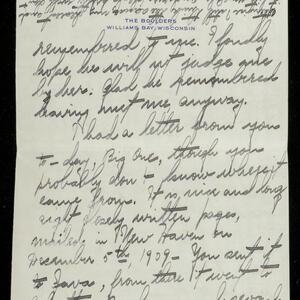 THE BOULDERS
WILLIAMS BAY, WISCONSIN
remembered of me. I fondly
hope he will not judge me
by her. Glad he remembered
having met me anyway.
I had a letter from you
to-day, Big One, though you
probably don't know where it
came from. It is nice and long
eight closely written pages,
mailed in New Haven on
December 5th, 1909 - You sent it
to from there it went to